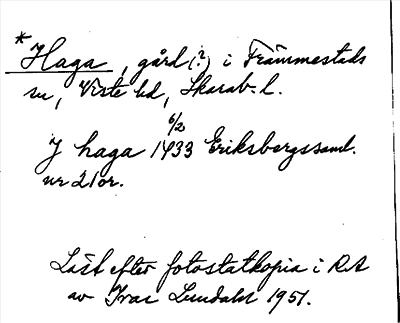 * Haga, gård (?) i Främmestads
sn, Viste hd, Skarab. l.
J haga 6/2 1433 Eriksbergssaml.
nr 21 or.
Läst efter fotostatkopia i RA
av Ivar Lundahl 1951.